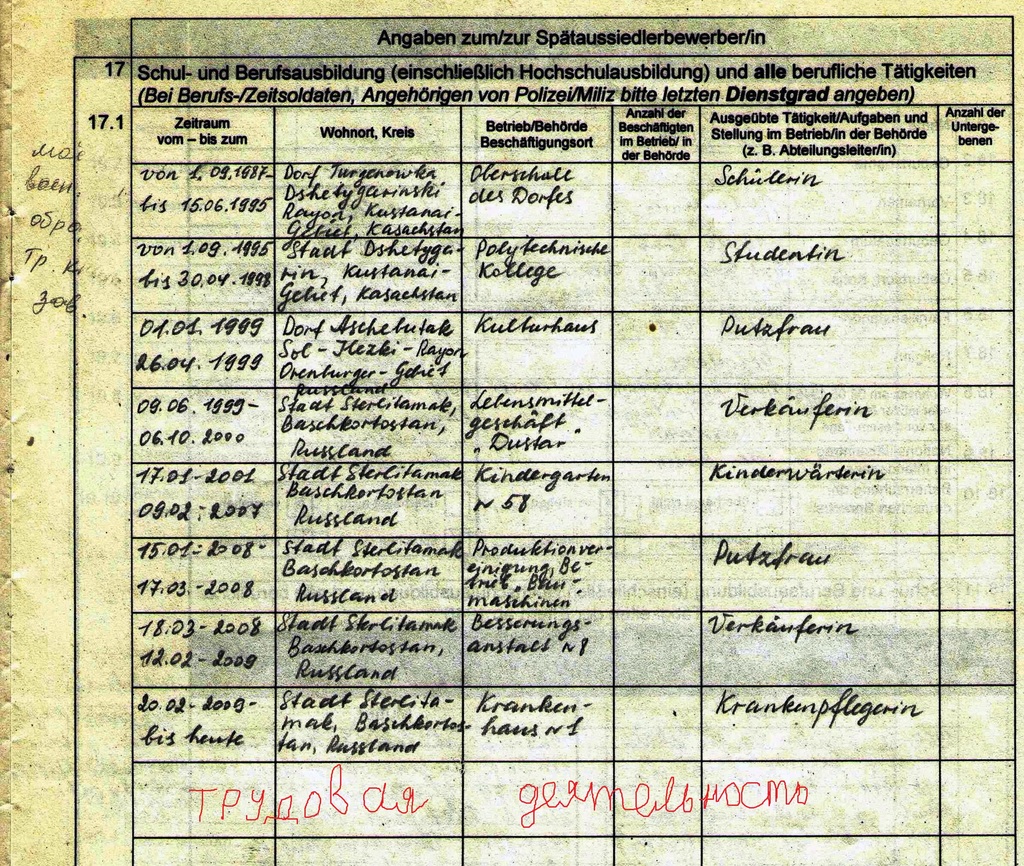 Angaben zum/zur Spätaussiedlerbewerber/in
17 Schul- und Berufsausbildung (einschließlich Hochschulausbildung) und alle berufliche Tätigkeiten
(Bei Berufs-/Zeitsoldaten, Angehörigen von Polizei/Miliz bitte letzten Dienstgrad angeben)
17.1
Zeitraum
vom – bis zum
Wohnort, Kreis
Betrieb/Behörde
Beschäftigungsort
Anzahl der
Beschäftigten
im Betrieb/ in
der Behörde
Ausgeübte Tätigkeit/Aufgaben und
Stellung im Betrieb/in der Behörde
(z. B. Abteilungsleiter/in)
Anzahl der
Unterge-
benen
von 1.09.1987-
bis 15.06.1995
Dorf Turgenowka
Dshetygarinski
Rayon, Kustanai-
Gebiet, Kasachstan
Oberschule
des Dorfes
Schülerin
von 1.09.1995
bis 30.04.1998
Stadt Dshetyga-
rin, Kustanai-
Gebiet, Kasachstan
Polytechnische
Kollege
Studentin
01.01.1999
26.04.1999
Dorf Aschebutak
Sol-Ilezki-Rayon
Orenburger-Gebiet
Russland
Kulturhaus
Putzfrau
09.06.1999-
06.10.2000
Stadt Sterlitamak,
Baschkortostan,
Russland
Lebensmittel-
geschäft
„Dustar"
Verkäuferin
17.01-2001
09.02-2007
Stadt Sterlitamak
Baschkortostan
Russland
Kindergarten
N 58
Kinderwärterin
15.01-2008-
17.03-2008
Stadt Sterlitamak
Baschkortostan
Russland
Produktionver-
einigung, Be-
trieb, Bau-
maschinen
Putzfrau
18.03-2008
12.02-2009
Stadt Sterlitamak
Baschkortostan,
Russland
Besserungs-
anstalt N 8
Verkäuferin
20.02-2009-
bis heute
Stadt Sterlita-
mak, Baschkortos-
tan, Russland
Kranken-
haus N 1
Krankenpflegerin
трудовая деятельность